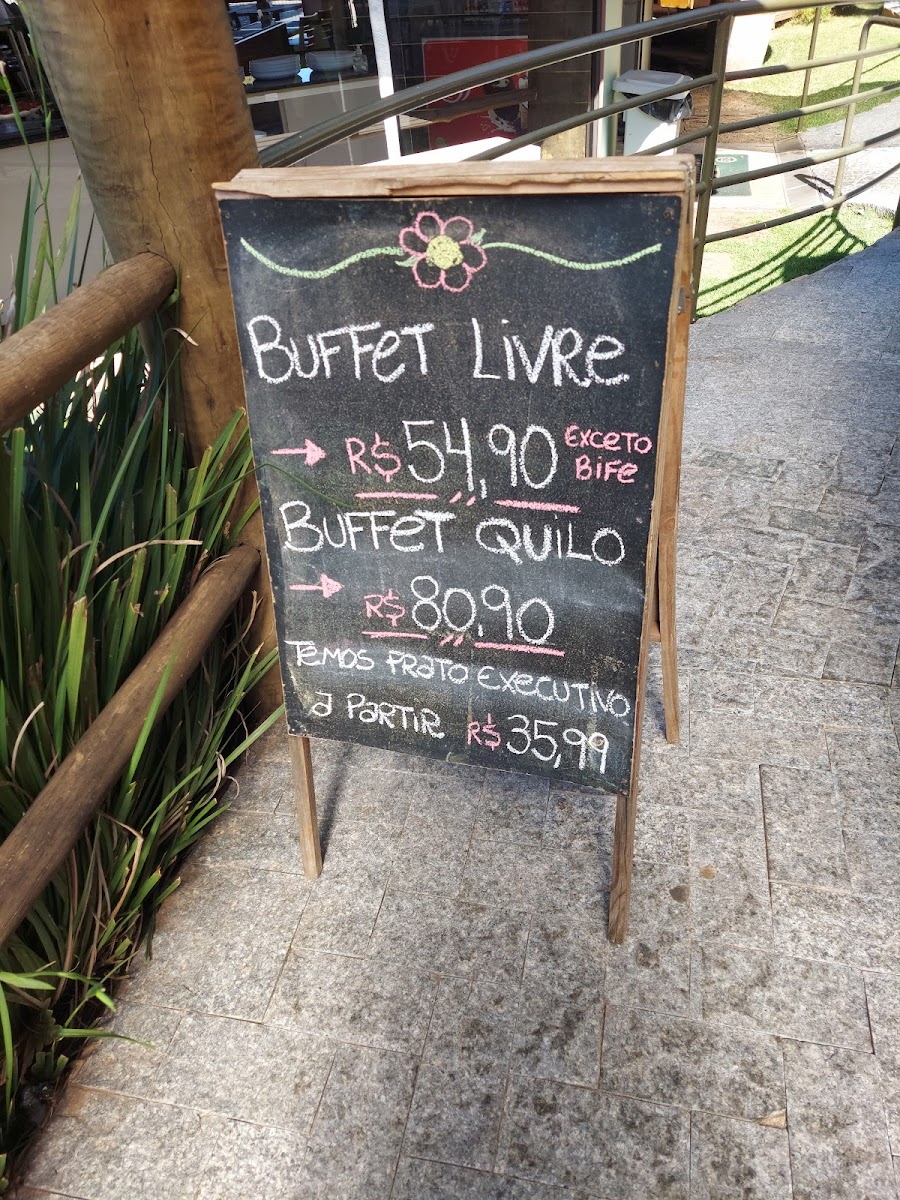 BUFFET LIVRE
→ R$ 54,90 EXCETO
BIFE
BUFFET QUILO
→ R$ 80,90
TEMOS PRATO EXECUTIVO
a PARTIR R$ 35,99